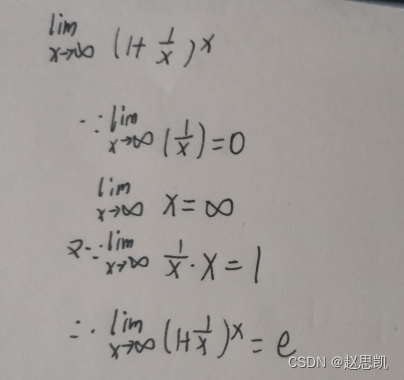 lim x→∞ (1+ 1/x)^x
∵ lim x→∞ (1/x) = 0
lim x→∞ x = ∞
又∵ lim x→∞ 1/x · x = 1
∴ lim x→∞ (1+ 1/x)^x = e
CSDN @赵思凯